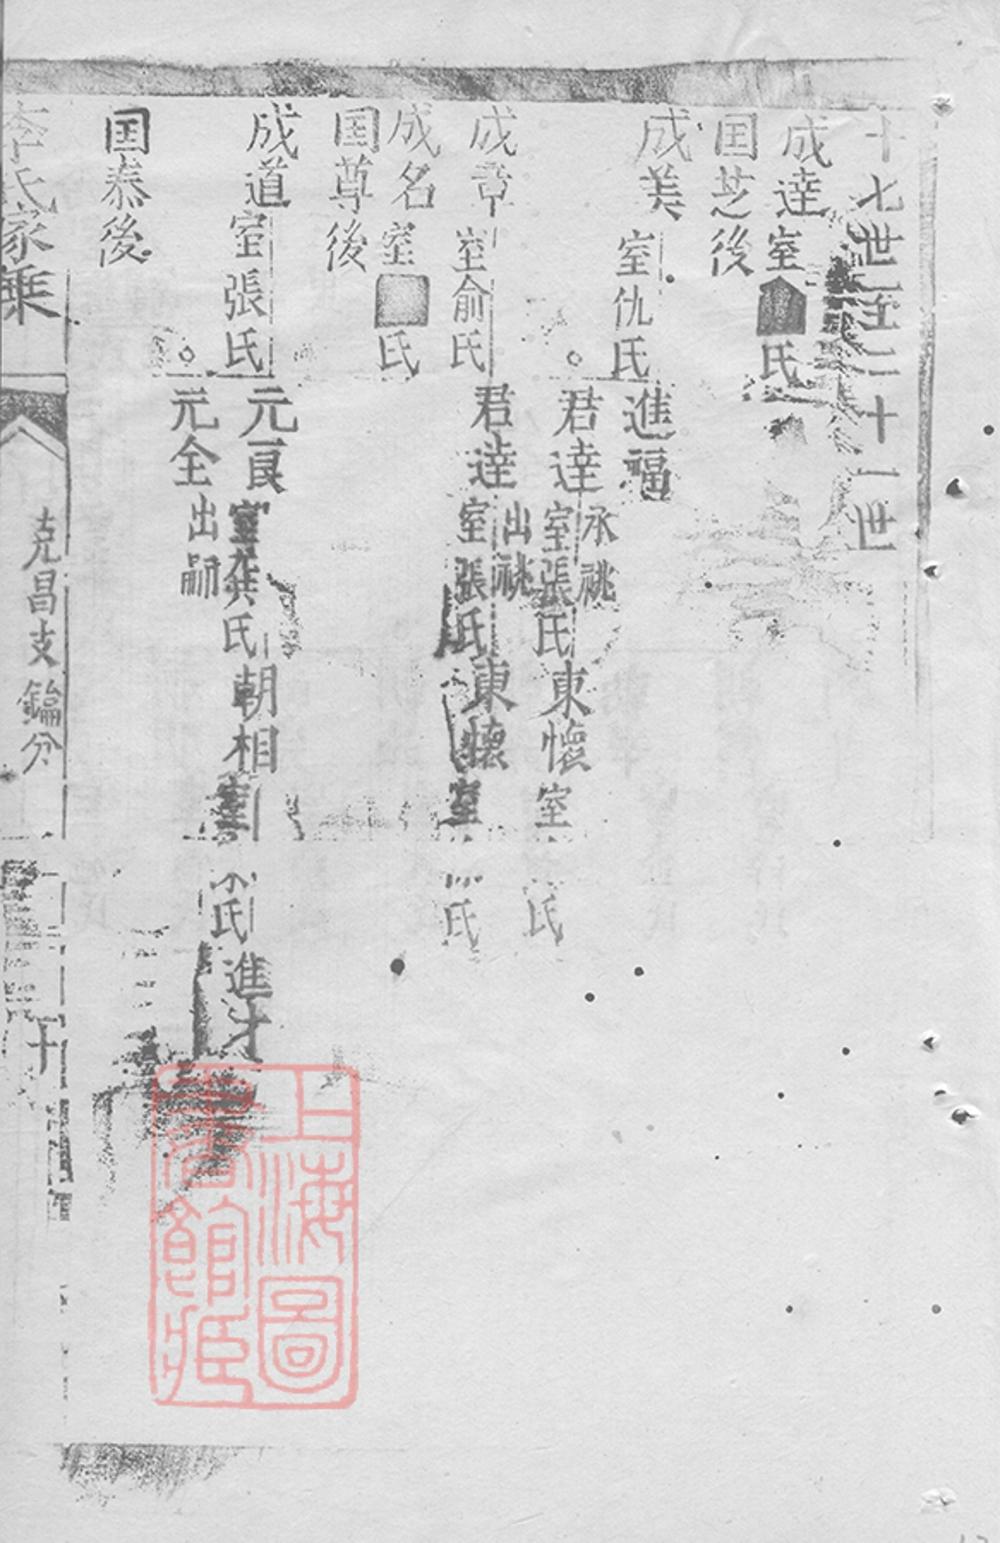 十七世至二十一世
成達室氏
国芝後
成美室仇氏進福
君達承祧室張氏東懷室氏
成章室俞氏君達出祧室張氏東懷室氏
成名室氏
国尊後
成道室張氏元良室氏朝相室氏進才
元全出嗣
国泰後
李氏家乘
克昌支鑰分
十
上海圖書館藏